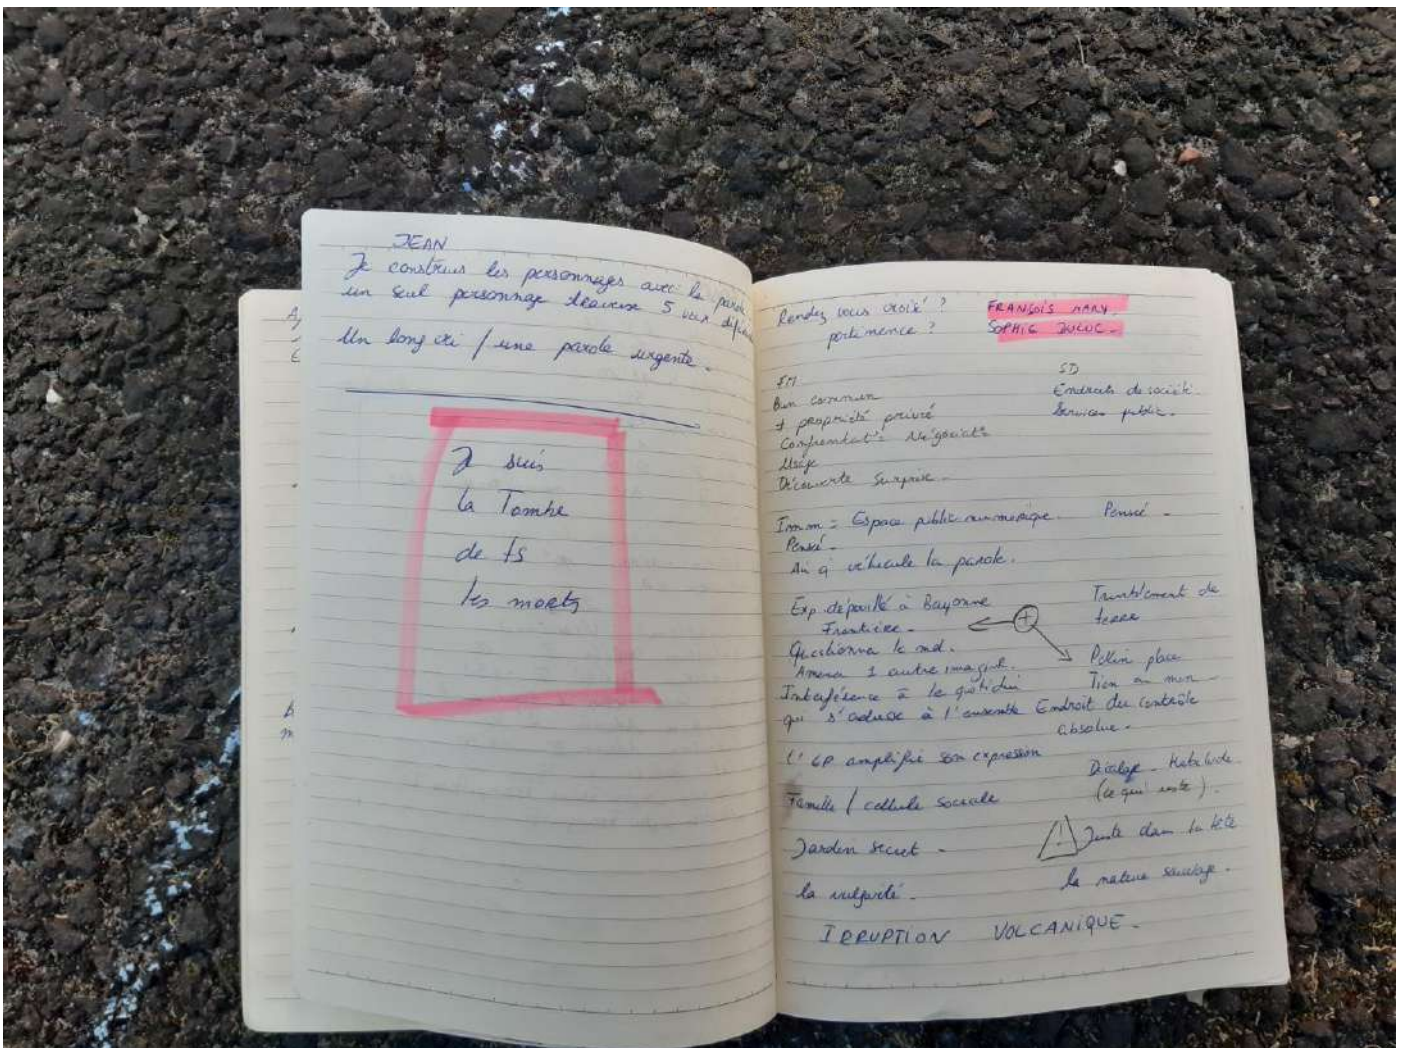 JEAN
Je construis les personnages avec la parole
un seul personnage traverse 5 voix
Un long cri / une parole urgente.
Je suis
la Tombe
de ts
les morts
Rendez vous croisé ?
pertinence ?
FRANÇOIS MARY.
SOPHIE DULUC.
FM
Bien commun
≠ propriété privé
Confrontat° Négociat°
Usage
Découverte Surprise.
SD
Endroits de société.
Services public.
Imm = Espace public numérique. Pensé.
Pensé.
véhicule la parole.
Exp. à Bayonne
Frontière.
Questionner le md.
Amener 1 autre imagin.
Interférence ds le quotidien
qui s'adresse à l'ensemble
+
Tremblement de
terre
place
Tien an men
Endroit du contrôle
absolue.
L'EP amplifie son expression
Famille / cellule sociale
Jardin secret.
la vulgarité.
Décalage.
(ce qui reste).
! Juste dans la tête
la nature sauvage.
IRRUPTION VOLCANIQUE.